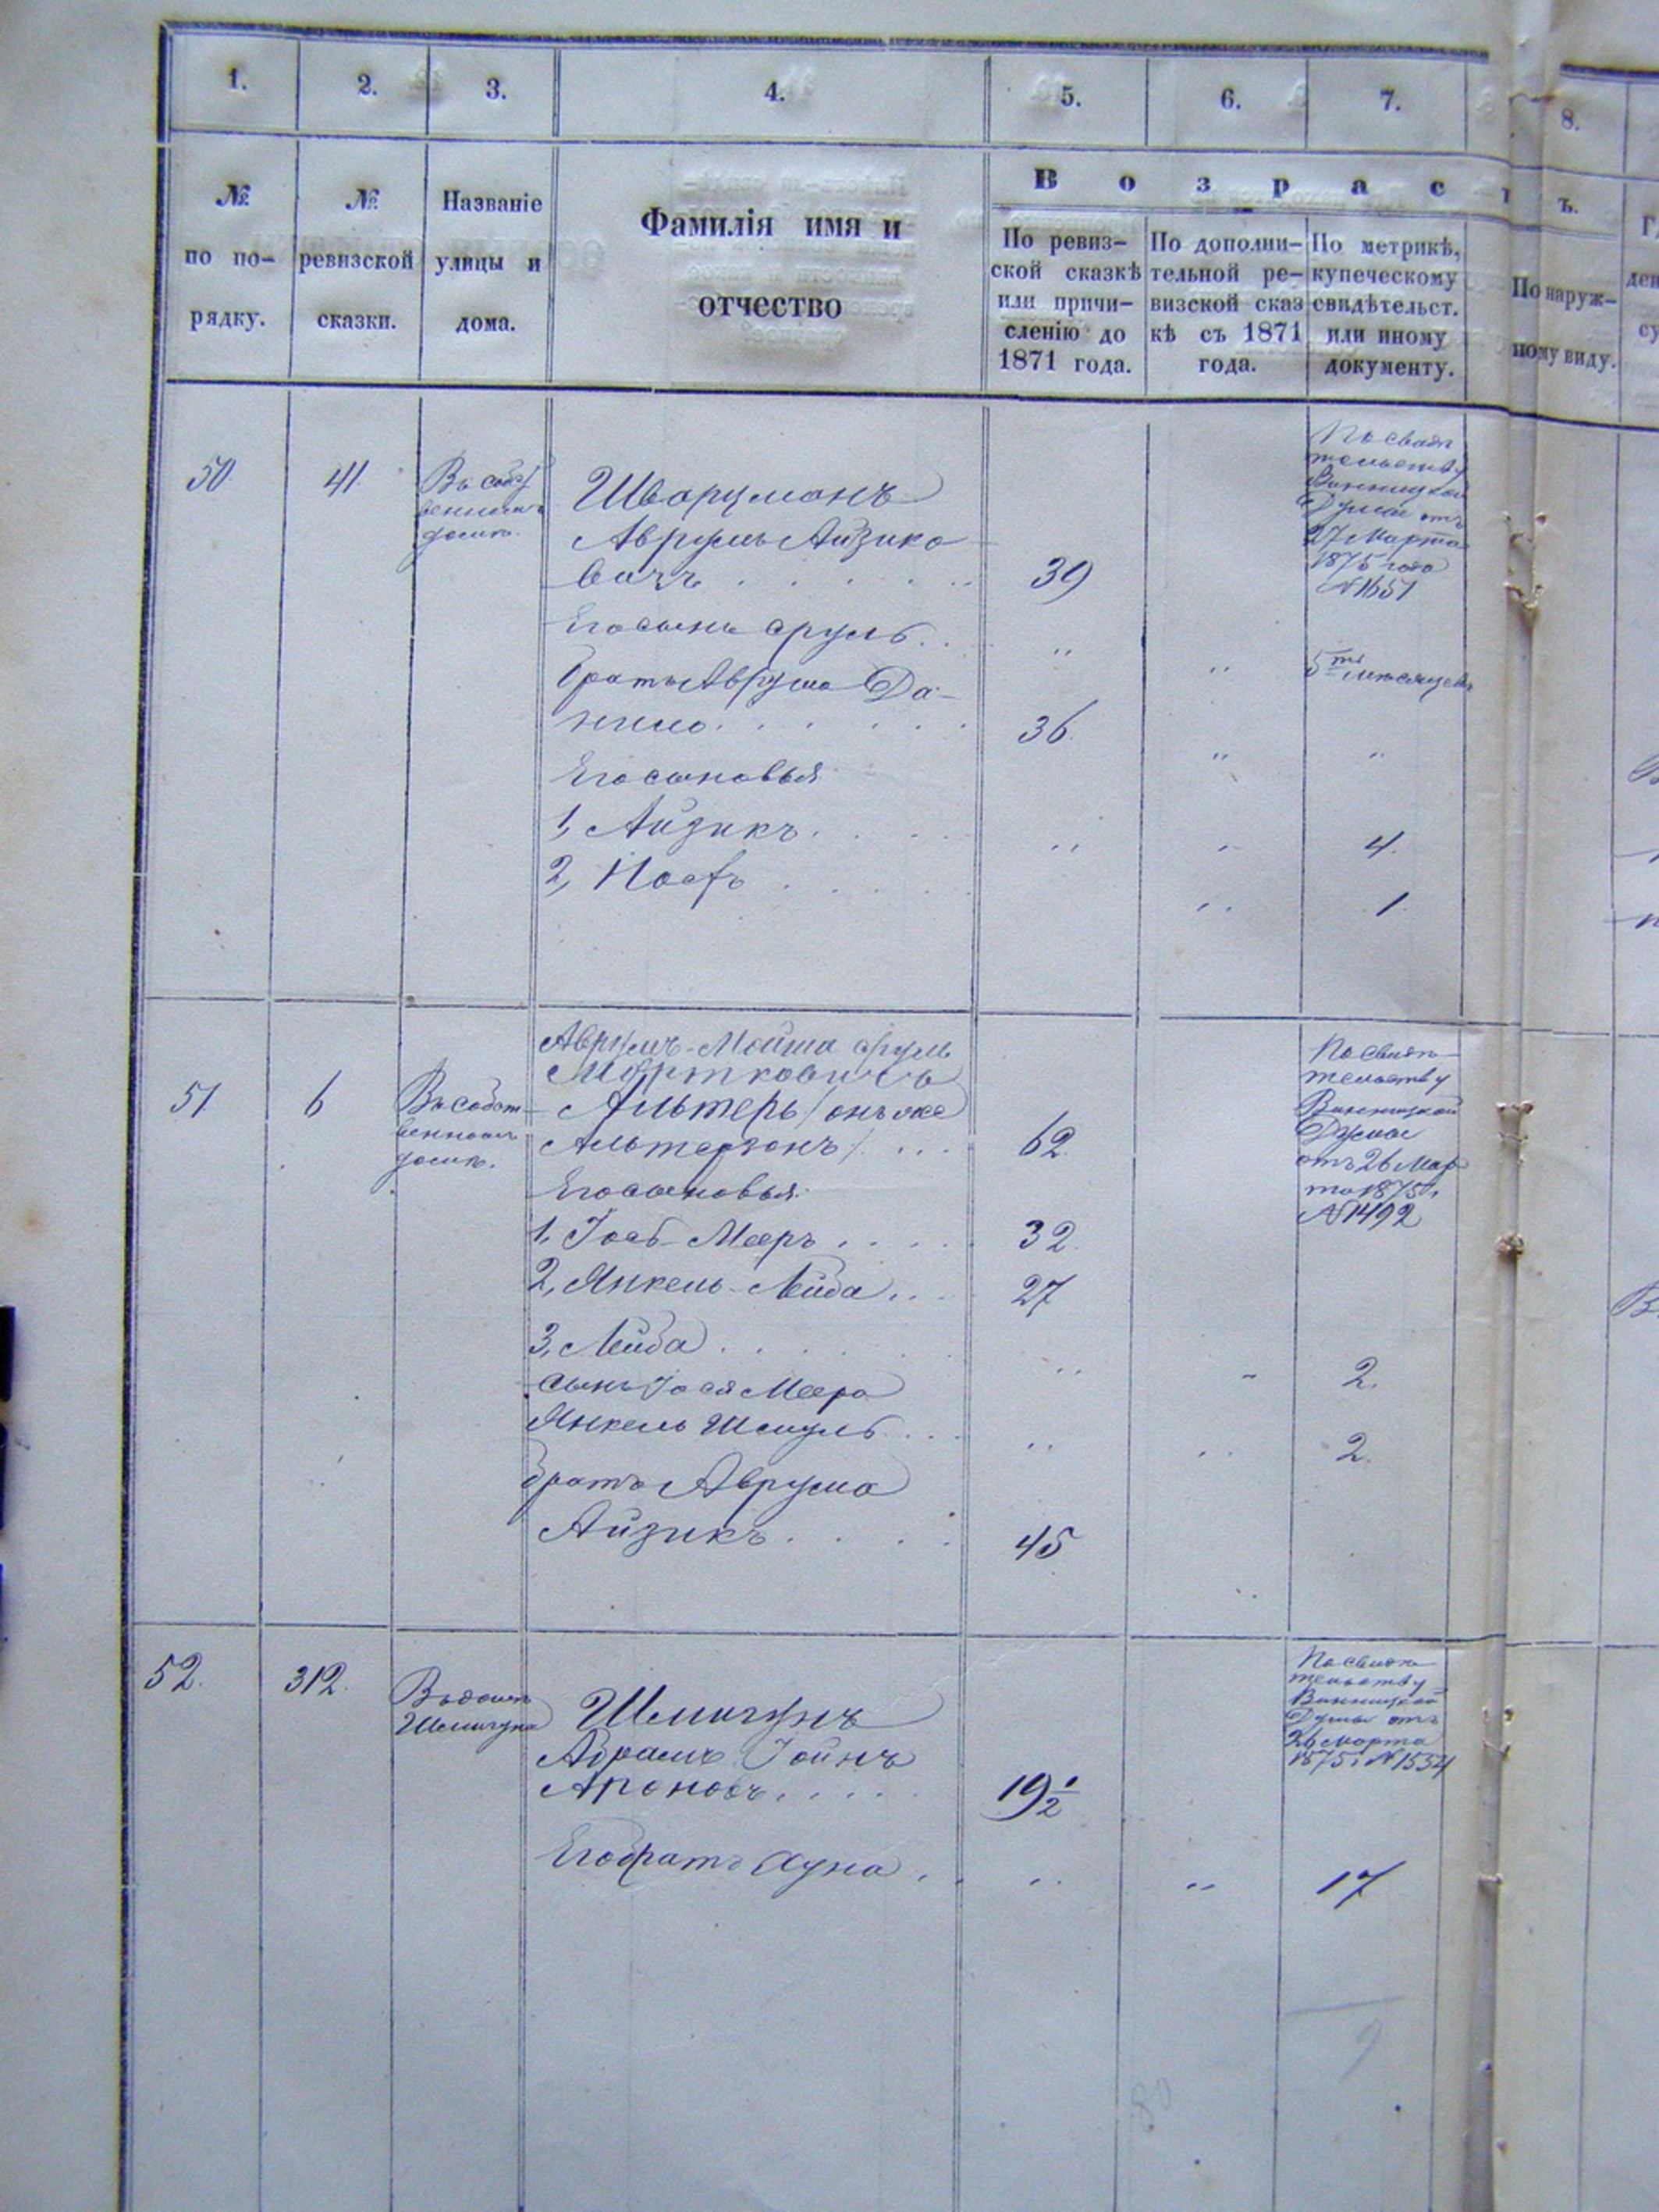 1. 2. 3. 4. 5. 6. 7. 8.
В о з р а с т ъ.
№ по по- рядку.
№ ревизской сказки.
Названіе улицы и дома.
Фамилія имя и
отчество
По ревиз-
ской сказкѣ
или причи-
сленію до
1871 года.
По дополни-
тельной ре-
визской сказ
кѣ съ 1871
года.
По метрикѣ,
купеческому
свидѣтельст.
или иному
документу.
По наруж-
ному виду.
50 41
Въ собст
венномъ
домѣ.
Шварцманъ
Аврумъ Айзико
вичъ 39
По свидѣ
тельству
Винницкой
Думы отъ
27 Марта
1875 года
№ 1651
Его сынъ Сруль " " 5ти мѣсяцевъ
братъ Аврума Да-
нило 36 " "
Его сыновья
1, Айзикъ " " 4.
2, Иосъ " 1.
51 6
Въ собст
венномъ
домѣ.
Аврумъ-Мойша Сруль
Мортковичъ
Альтеръ / онъ же
Альтерзонъ / 62.
По свидѣ
тельству
Винницкой
Думы
отъ 26 Мар
та 1875 г.
№ 1492
Его сыновья
1, Іось Мееръ 32.
2, Янкель-Лейба 27
3, Лейба " - 2.
Сынъ Іося Меера
Янкель Шмуль " " 2.
братъ Аврума
Айзикъ 45
52. 312.
Въ домѣ
Шмигуна
Шмигунъ
Абрамъ Іойнъ
Ароновъ 19 1/2
По свидѣ
тельству
Винницкой
Думы отъ
26 марта
1875 г. № 1534
Его братъ Суна " " 17